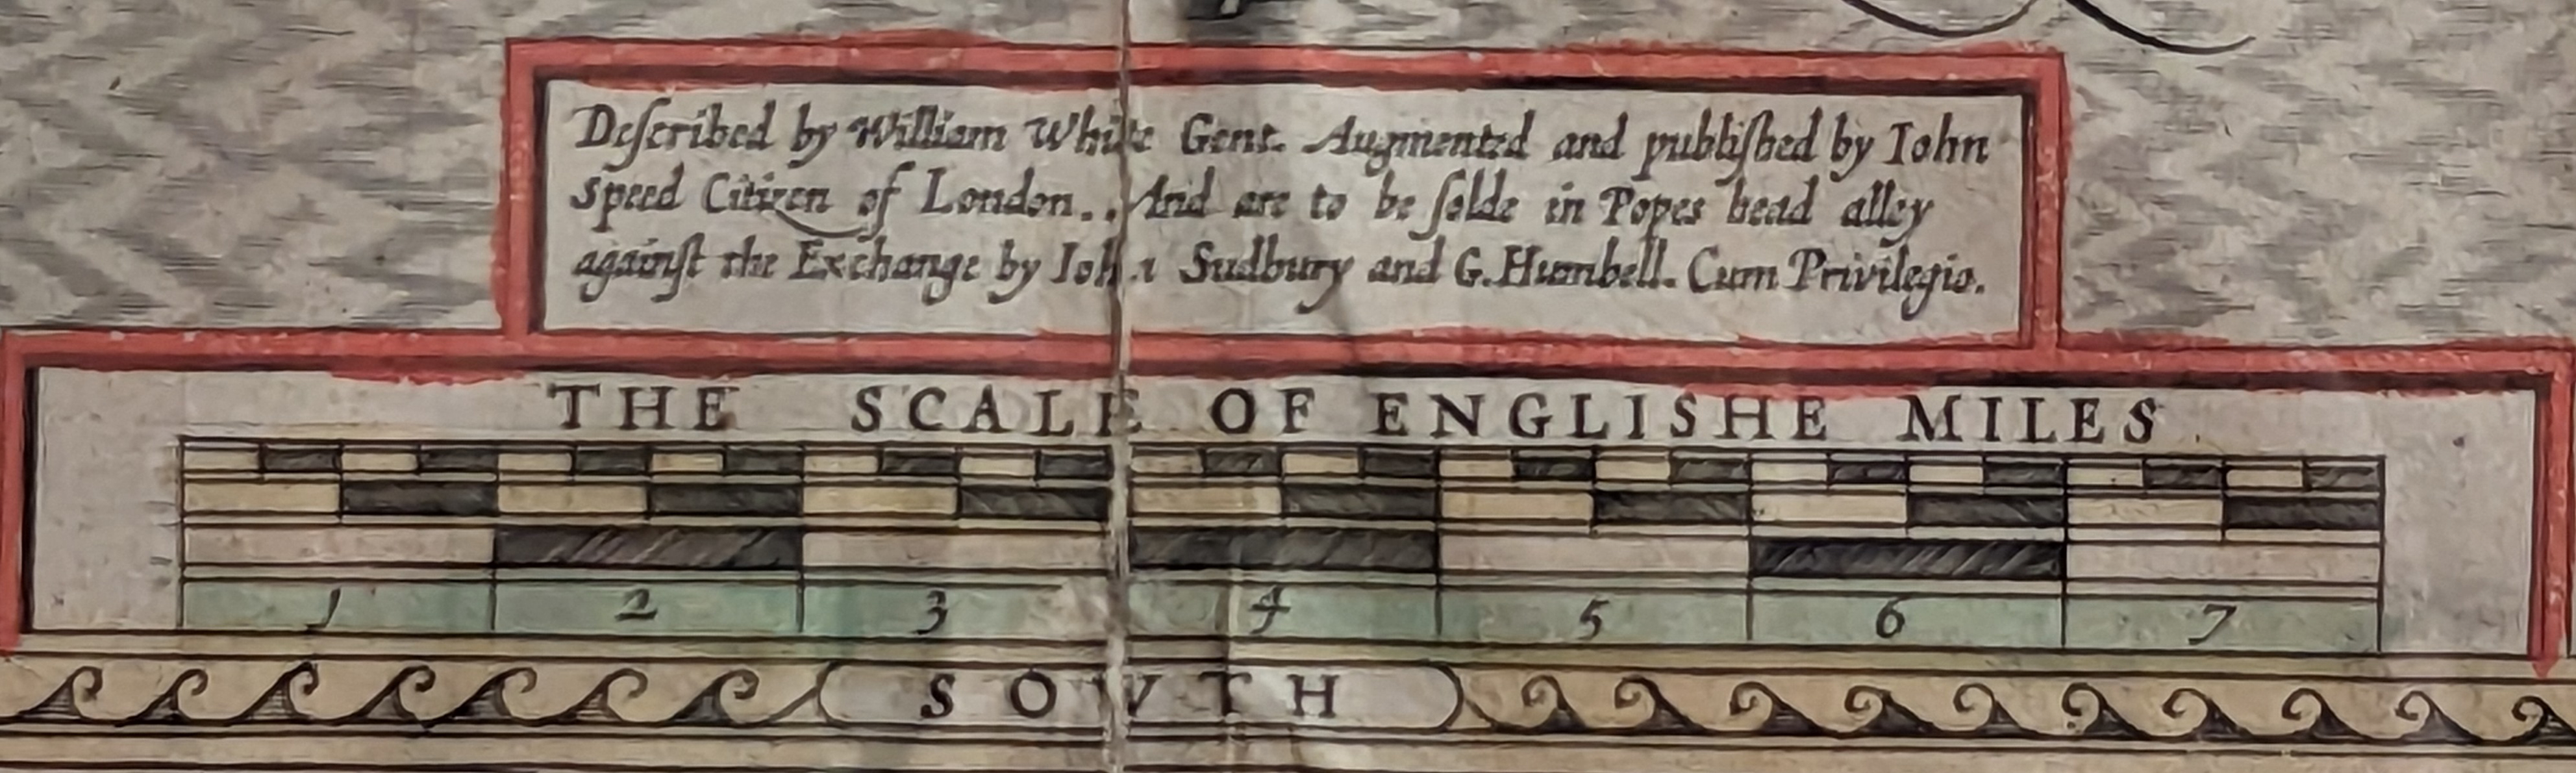 Deſcribed by William White Gent. Augmented and publiſhed by Iohn
Speed Citizen of London.. And are to be ſolde in Popes head alley
againſt the Exchange by Iohn Sudbury and G. Humbell. Cum Privilegio.
THE SCALE OF ENGLISHE MILES
1 2 3 4 5 6 7
SOVTH